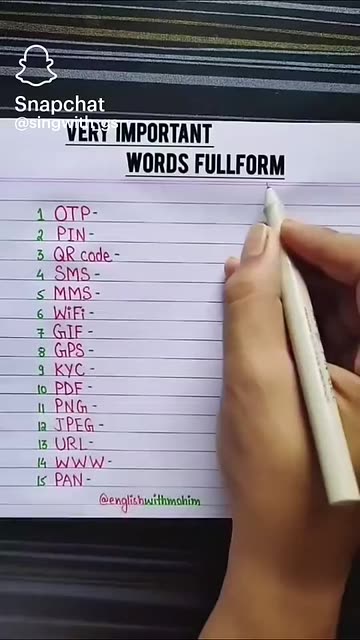 Snapchat
@singwith
VERY IMPORTANT
WORDS FULLFORM
1 OTP-
2 PIN-
3 QR code-
4 SMS-
5 MMS-
6 WiFi-
7 GIF-
8 GPS-
9 KYC-
10 PDF-
11 PNG-
12 JPEG-
13 URL-
14 WWW-
15 PAN-
@englishwithmahim